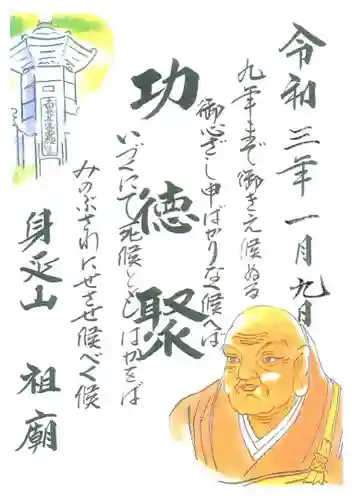 令和三年一月九日
九年まで御きえ候ぬる
御心ざし申ばかりなく候へば
功徳聚
いづくにて死候ともはかをば
みのぶさわにせさせ候べく候
身延山 祖廟